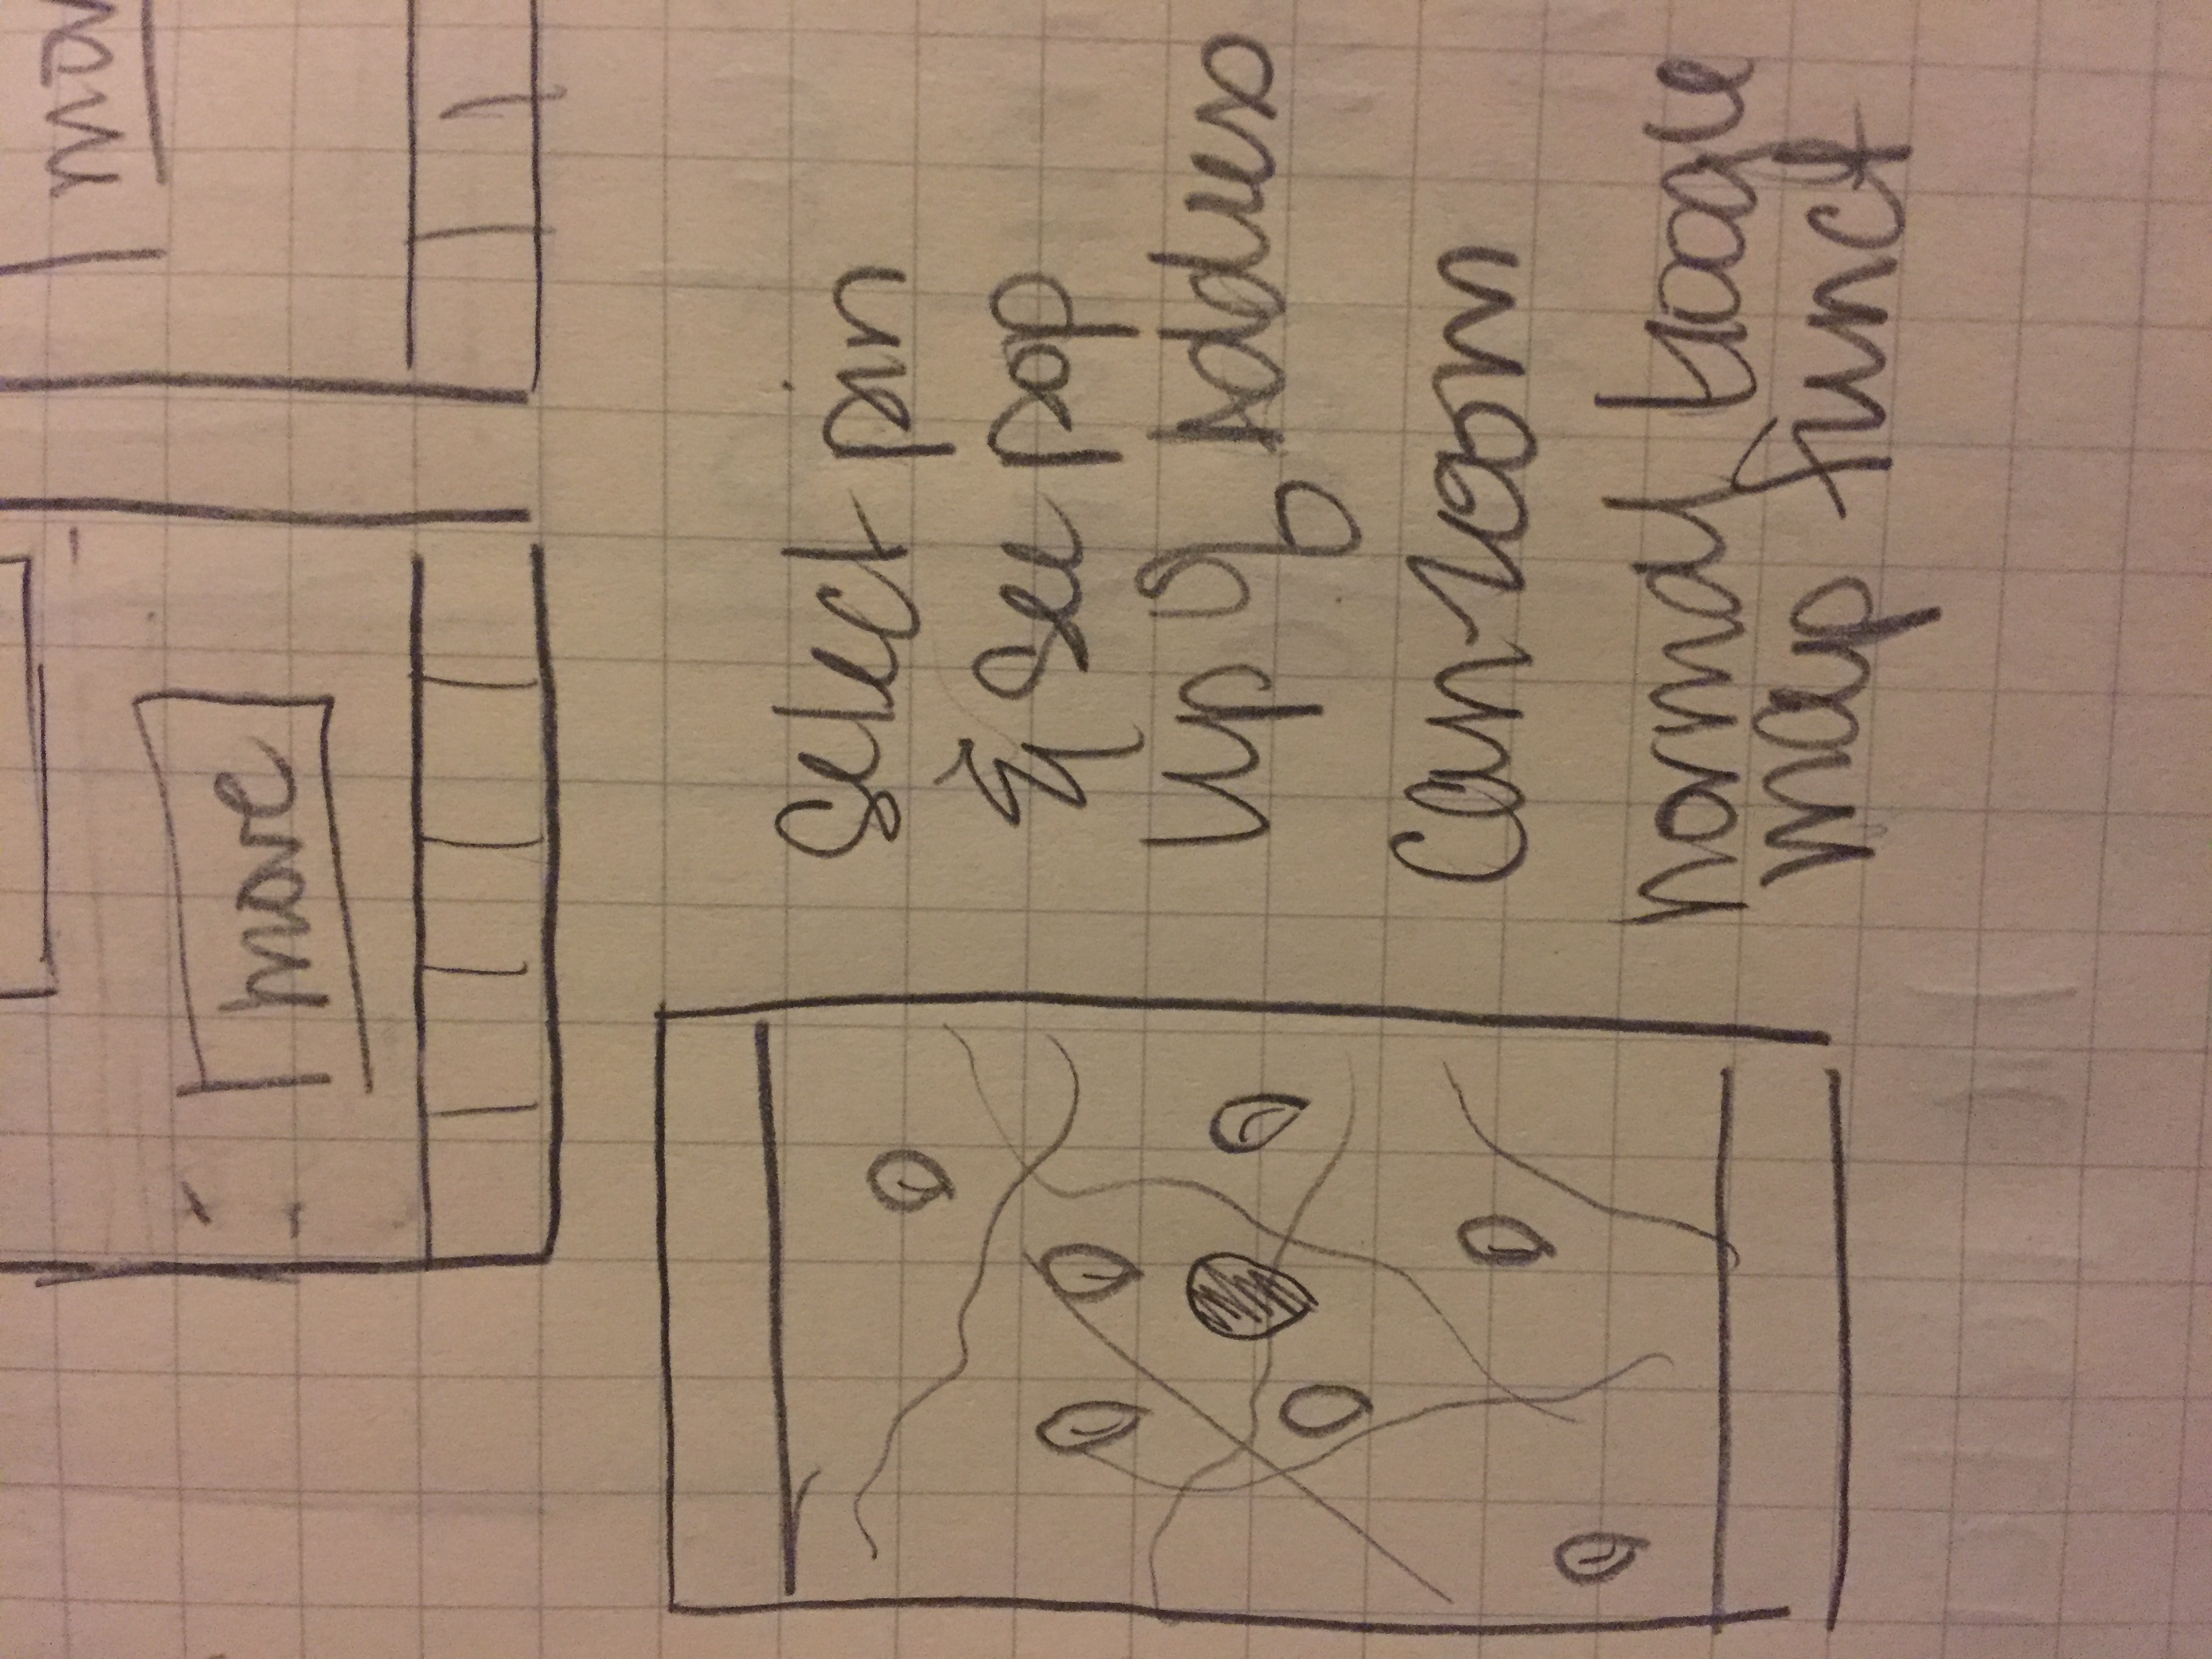 move
select pin
& see pop
up of Address
can zoom
normal Google
map funct